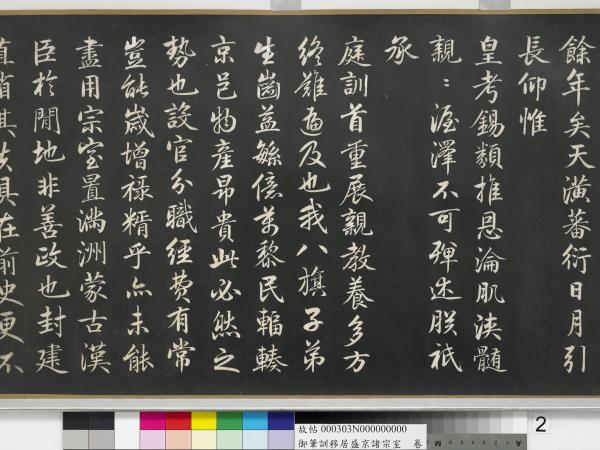 餘年矣天潢蕃衍日月引
長仰惟
皇考錫類推恩淪肌浹髓
親〻渥澤不可殫述朕祇
承
庭訓首重展親教養多方
終難遍及也我八旗子弟
生齒益緐億萬黎民輻輳
京邑物產昂貴此必然之
勢也設官分職經費有常
豈能歲增祿糈乎亦未能
盡用宗室置滿洲蒙古漢
臣於閒地非善政也封建
直省其失具在前史更不
故帖 000303N000000000
御筆訓移居盛京諸宗室 卷
2